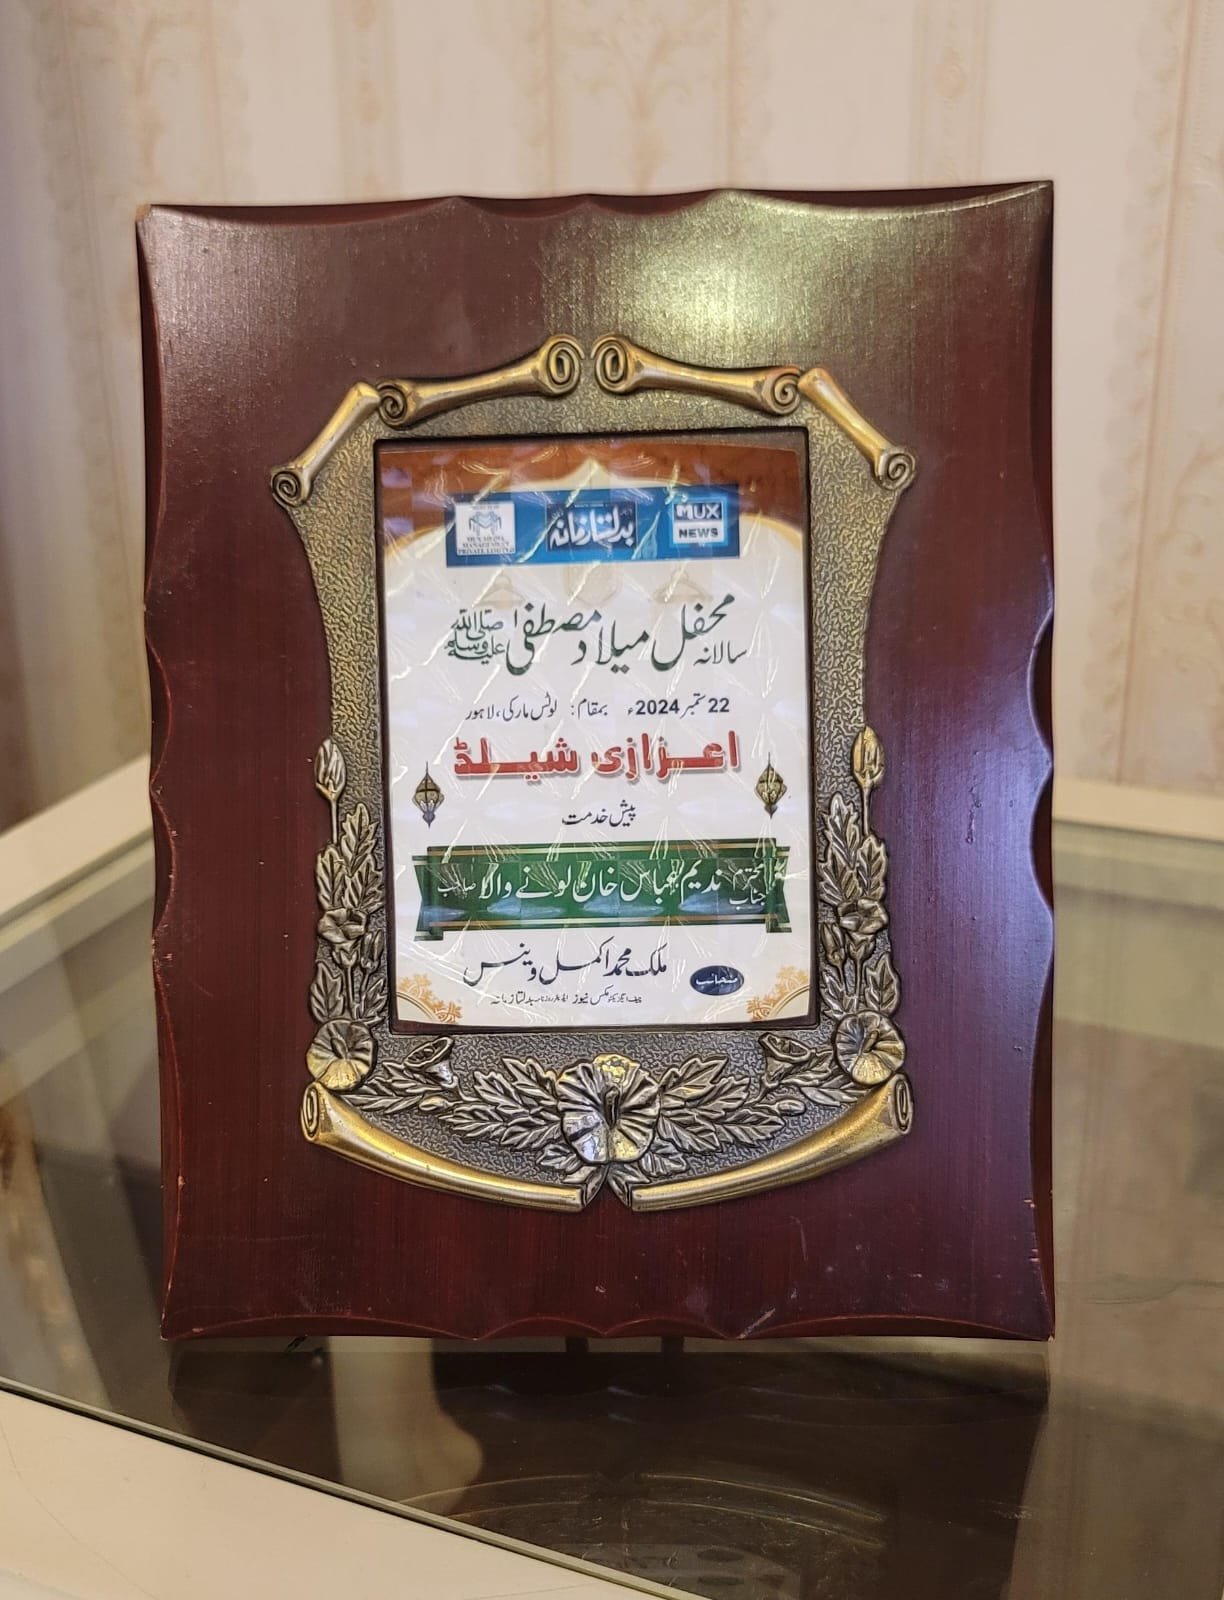 MUX MEDIA
MANAGEMENT
PRIVATE LIMITED
بدلتا زمانہ
MUX
NEWS
سالانہ محفل میلاد مصطفیٰ صلی اللہ علیہ وسلم
22 ستمبر 2024ء بمقام: لوٹس مارکی، لاہور
اعزازی شیلڈ
پیش خدمت
محترم جناب ندیم عباس خان لونے والا صاحب
منجانب
ملک محمد اکمل وینس
چیف ایگزیکٹو مکس نیوز ایڈیٹر روزنامہ بدلتا زمانہ